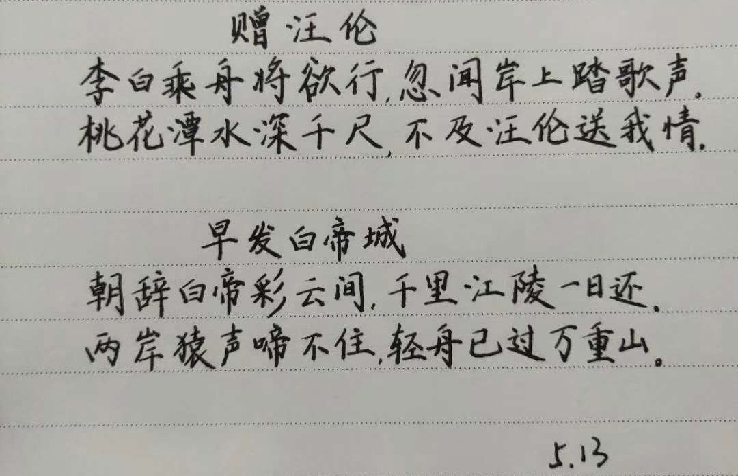 赠汪伦
李白乘舟将欲行,忽闻岸上踏歌声.
桃花潭水深千尺,不及汪伦送我情.
早发白帝城
朝辞白帝彩云间,千里江陵一日还.
两岸猿声啼不住,轻舟已过万重山。
5.13